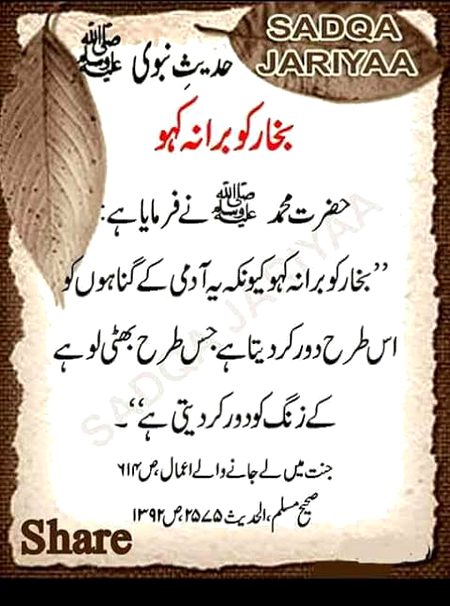 SADQA
JARIYAA
حدیثِ نبوی ﷺ
بخار کو برا نہ کہو
حضرت محمد ﷺ نے فرمایا ہے:
”بخار کو برا نہ کہو کیونکہ یہ آدمی کے گناہوں کو
اس طرح دور کر دیتا ہے جس طرح بھٹی لوہے
کے زنگ کو دور کر دیتی ہے“۔
جنت میں لے جانے والے اعمال،ص ۶۱۴
صحیح مسلم،الحدیث ۲۵۷۵،ص ۱۳۹۲
Share
SADQA JARIYAA